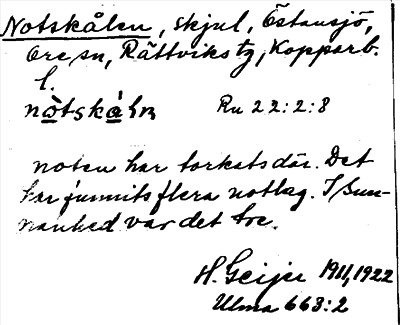 Notskålen, skjul, Östansjö,
Ore sn, Rättviks tg, Kopparb.
l.
nòtskálɳ Ru 22:2:8
noten har torkats där. Det
har funnits flera notlag. I Sun-
nanhed var det tre.
H. Geijer 1911, 1922
Ulma 663:2